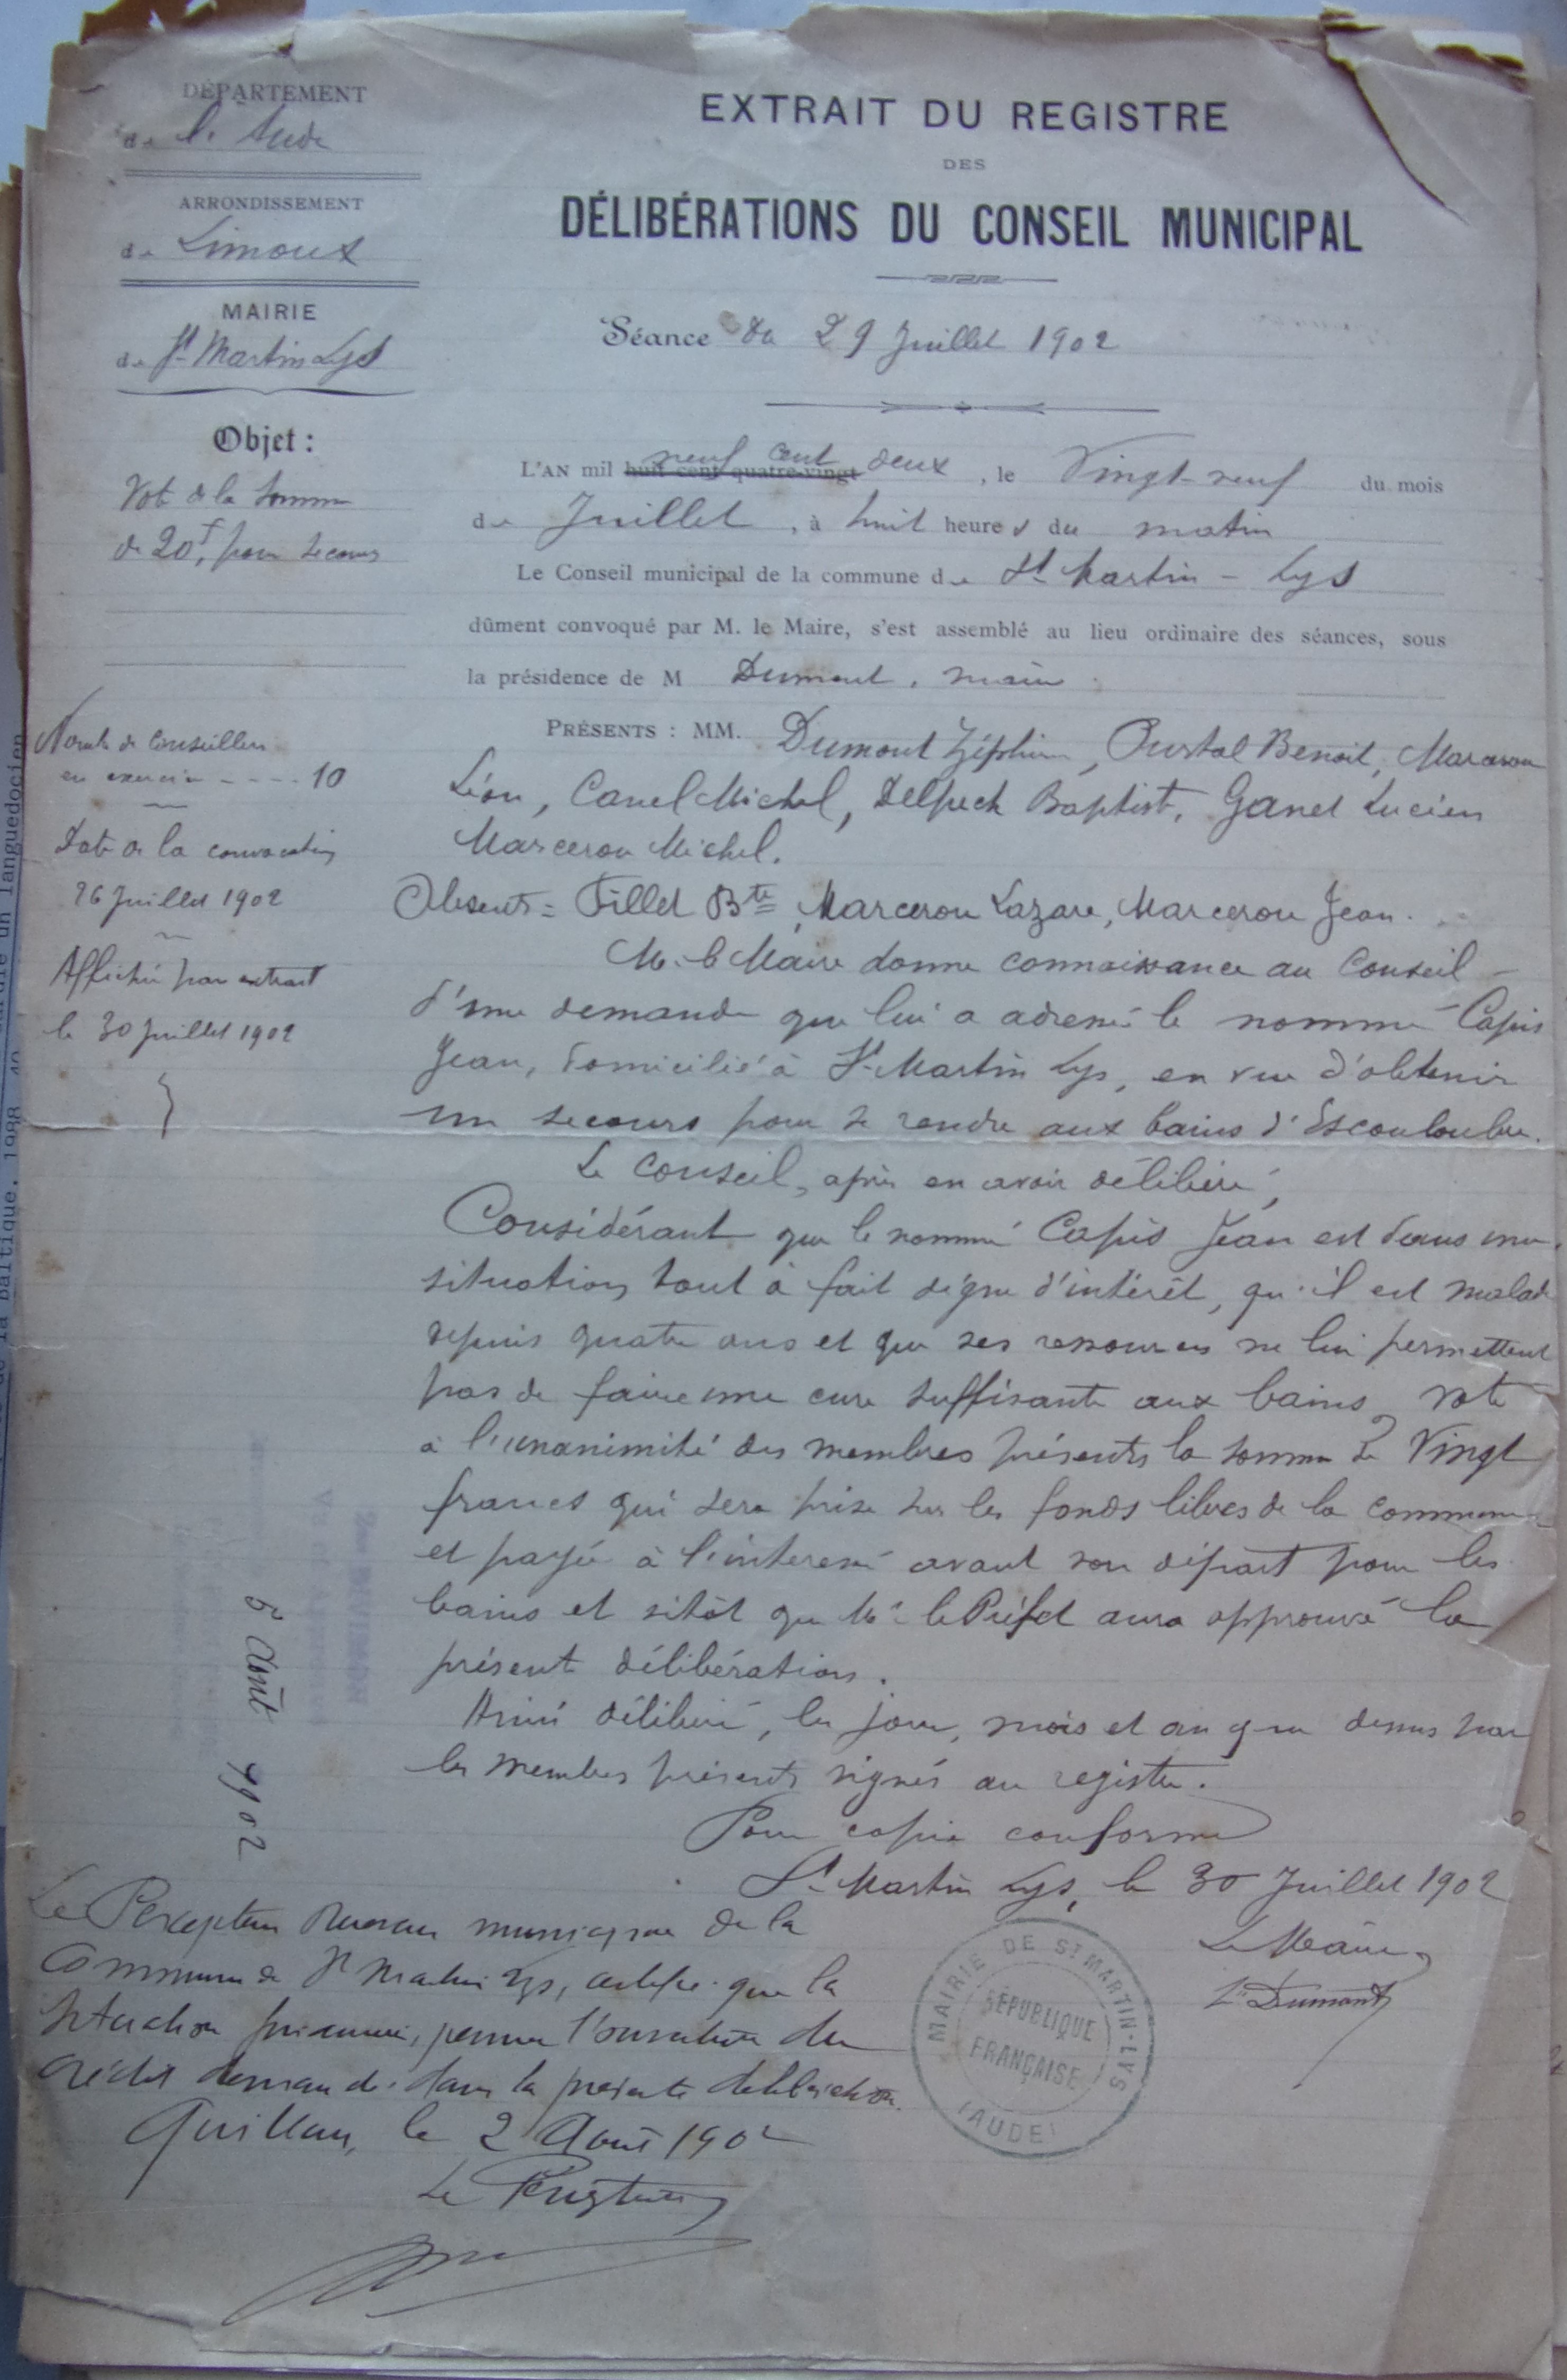 DÉPARTEMENT
de l'Aude
ARRONDISSEMENT
de Limoux
MAIRIE
de St Martin Lys
Objet :
Vote de la somme
de 20f, pour secours
Nombre de Conseillers
en exercice - - - - 10
Date de la convocation
26 Juillet 1902
Affiché par extrait
le 30 Juillet 1902
EXTRAIT DU REGISTRE
DES
DÉLIBÉRATIONS DU CONSEIL MUNICIPAL
Séance du 29 Juillet 1902
L'AN mil huit cent quatre-vingt neuf cent deux, le Vingt-neuf du mois
de Juillet, à huit heures du matin
Le Conseil municipal de la commune de St Martin - Lys
dûment convoqué par M. le Maire, s'est assemblé au lieu ordinaire des séances, sous
la présidence de M Dumont, maire.
PRÉSENTS : MM. Dumont Zéphirin, Oustal Benoit, Marcerou
Léon, Canel Michel, Delpech Baptiste, Ganet Lucien
Marcerou Michel.
Absents = Fillet Bte, Marcerou Lazare, Marcerou Jean.
M. le Maire donne connaissance au Conseil
d'une demande que lui a adressé le nommé Capis
Jean, domicilié à St Martin Lys, en vue d'obtenir
un secours pour se rendre aux bains d'Escouloubre.
Le Conseil, après en avoir délibéré,
Considérant que le nommé Capis Jean est dans une
situation tout à fait digne d'intérêt, qu'il est malade
depuis quatre ans et que ses ressources ne lui permettent
pas de faire une cure suffisante aux bains, vote
à l'unanimité des membres présents la somme de Vingt
francs qui sera prise sur les fonds libres de la commune
et payée à l'interessé avant son départ pour les
bains et sitôt que Mr le Préfet aura approuvé la
présente délibération.
Ainsi délibéré, les jour, mois et an que dessus par
les membres présents signés au registre.
Pour copie conforme
St Martin Lys, le 30 Juillet 1902
Le Maire,
Zin Dumont
MAIRIE DE ST MARTIN-LYS
RÉPUBLIQUE
FRANÇAISE
(AUDE)
6 Août 1902
Le Percepteur Receveur municipal de la
Commune de St Martin Lys, certifie que la
situation financière, permet l'ouverture du
crédit demandé dans la présente délibération.
Quillan, le 2 Août 1902
Le Percepteur